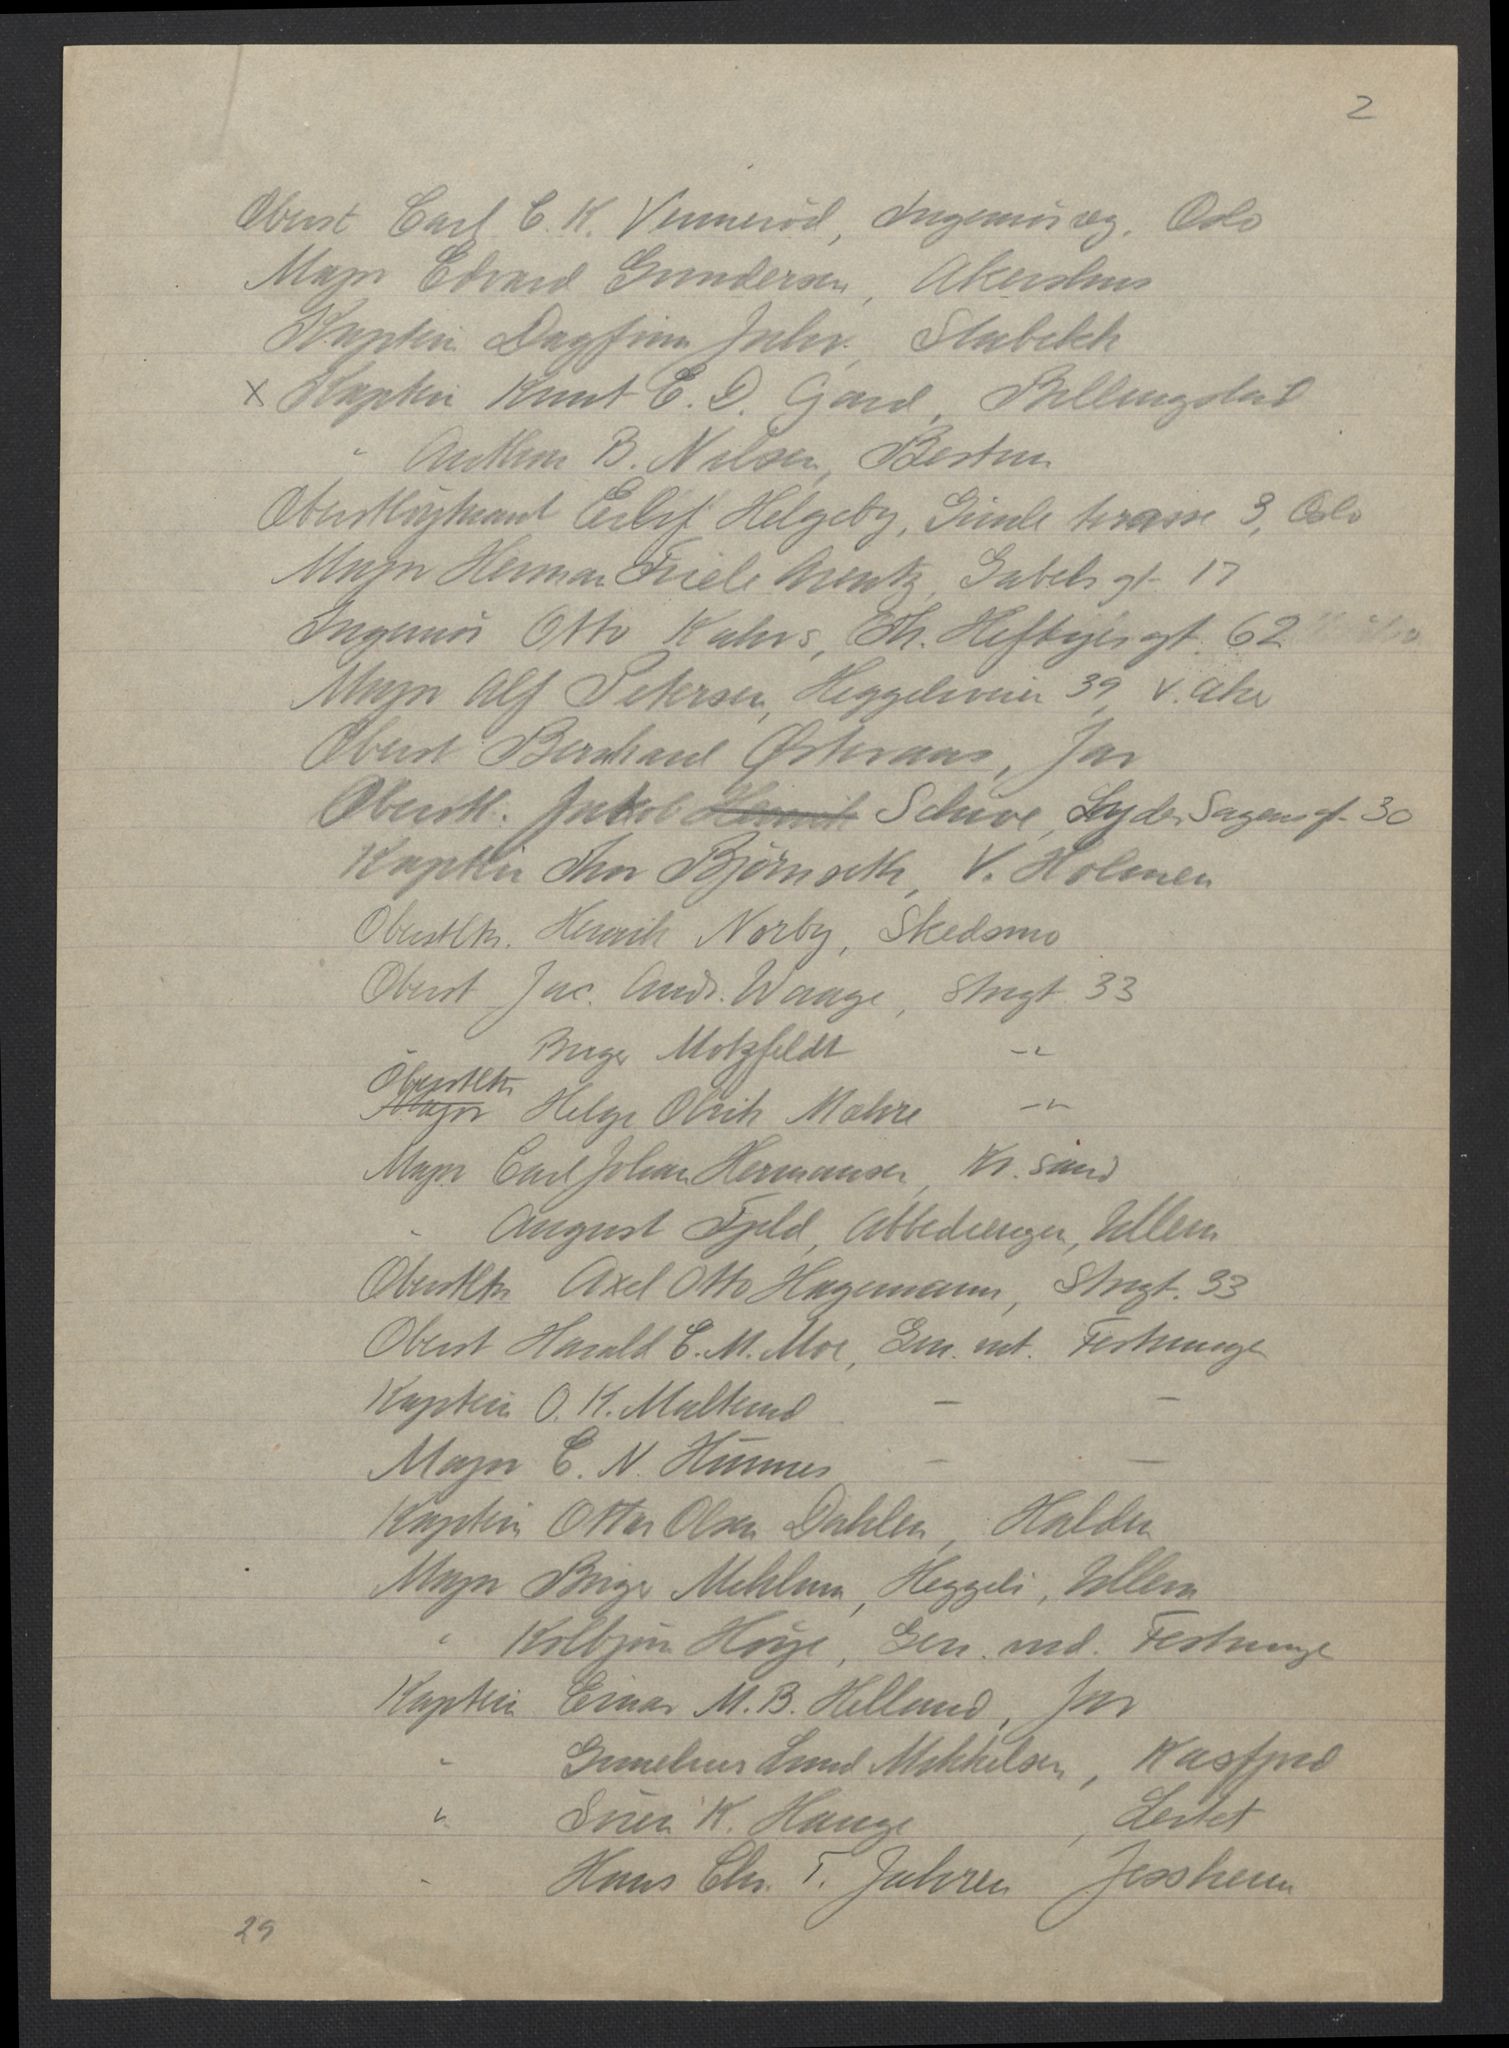 2
Oberst Carl C. K. Vennerød, Ingeniörreg. Oslo
Major Edvard Gundersen, Akershus
Kaptein Dagfinn Juhr, Stabekk
x Kaptein Knut E. D. Gjard, Billingstad
" Anthon B. Nilsen, Bestum
Oberstløytnant Eilif Helgeby, Gimle terasse 3, Oslo
Major Herman Friele Arentz, Gabels gt. 17
Ingeniör Otto Kahrs, Th. Heftyes gt. 62
Major Alf Petersen, Heggelivein 39, V. Aker
Oberst Bernhard Østeraas, Jar
Oberstl. Jakob Henrik Schive, Lyder Sagens gt. 30
Kaptein Thor Björnseth, V. Holmen
Oberstltn. Henrik Norby, Skedsmo
Oberst Jac. Andr. Waage, Strgt. 33
" Birger Motzfeldt -"-
Oberstltn
Major Helge Olrik Mahre -"-
Major Carl Johan Hermansen, Kr.sand
" August Fjeld, Abbedienger, Ullern
Oberstltn Axel Otto Hagemann, Strgt. 33
Oberst Harald C. M. Moe, Gen. int. Festninger
Kaptein O. K. Malterud - -
Major E. N. Hunnes - -
Kaptein Ottar Olsen Dahlen, Halden
Major Birger Mehlum, Heggeli, Ullern
" Kolbjörn Höye, Gen. ind. Festninge
Kaptein Einar M. B. Helland, Jar
" Lund Mikkelsen, Kasfjord
" Sören K. Hauge, Leitet
" Hans Chr. T. Juhren Jessheim
29